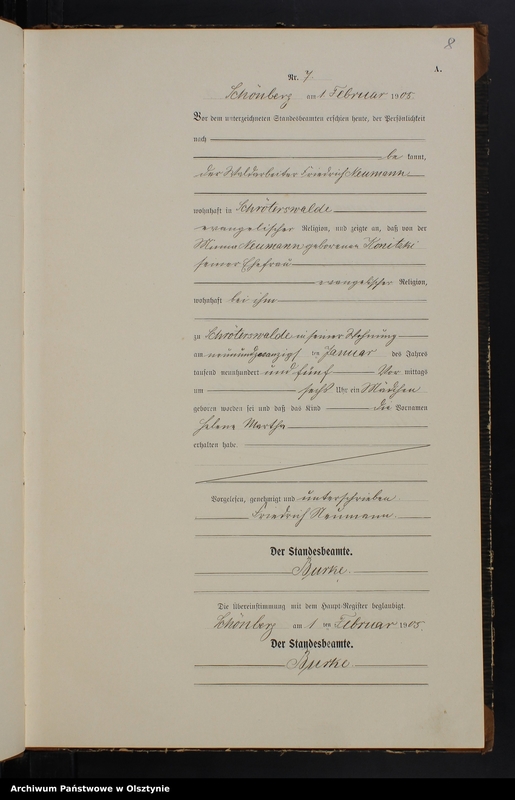 8
A.
Nr. 7.
Schönberg am 1 Februar 1905.
Vor dem unterzeichneten Standesbeamten erschien heute, der Persönlichkeit
nach
be kannt,
der Waldarbeiter Friedrich Neumann
wohnhaft in Schröterswalde
evangelischer Religion, und zeigte an, daß von der
Minna Neumann geborenen Konitzki
seiner Ehefrau
evangelischer Religion,
wohnhaft bei ihm
zu Schröterswalde in seiner Wohnung
am neunundzwanzigsten Januar des Jahres
tausend neunhundert und fünf Vor mittags
um sechs Uhr ein Mädchen
geboren worden sei und daß das Kind die Vornamen
Helene Martha
erhalten habe.
Vorgelesen, genehmigt und unterschrieben
Friedrich Neumann
Der Standesbeamte.
Burke.
Die Übereinstimmung mit dem Haupt-Register beglaubigt.
Schönberg am 1 ten Februar 1905.
Der Standesbeamte.
Burke
Archiwum Państwowe w Olsztynie